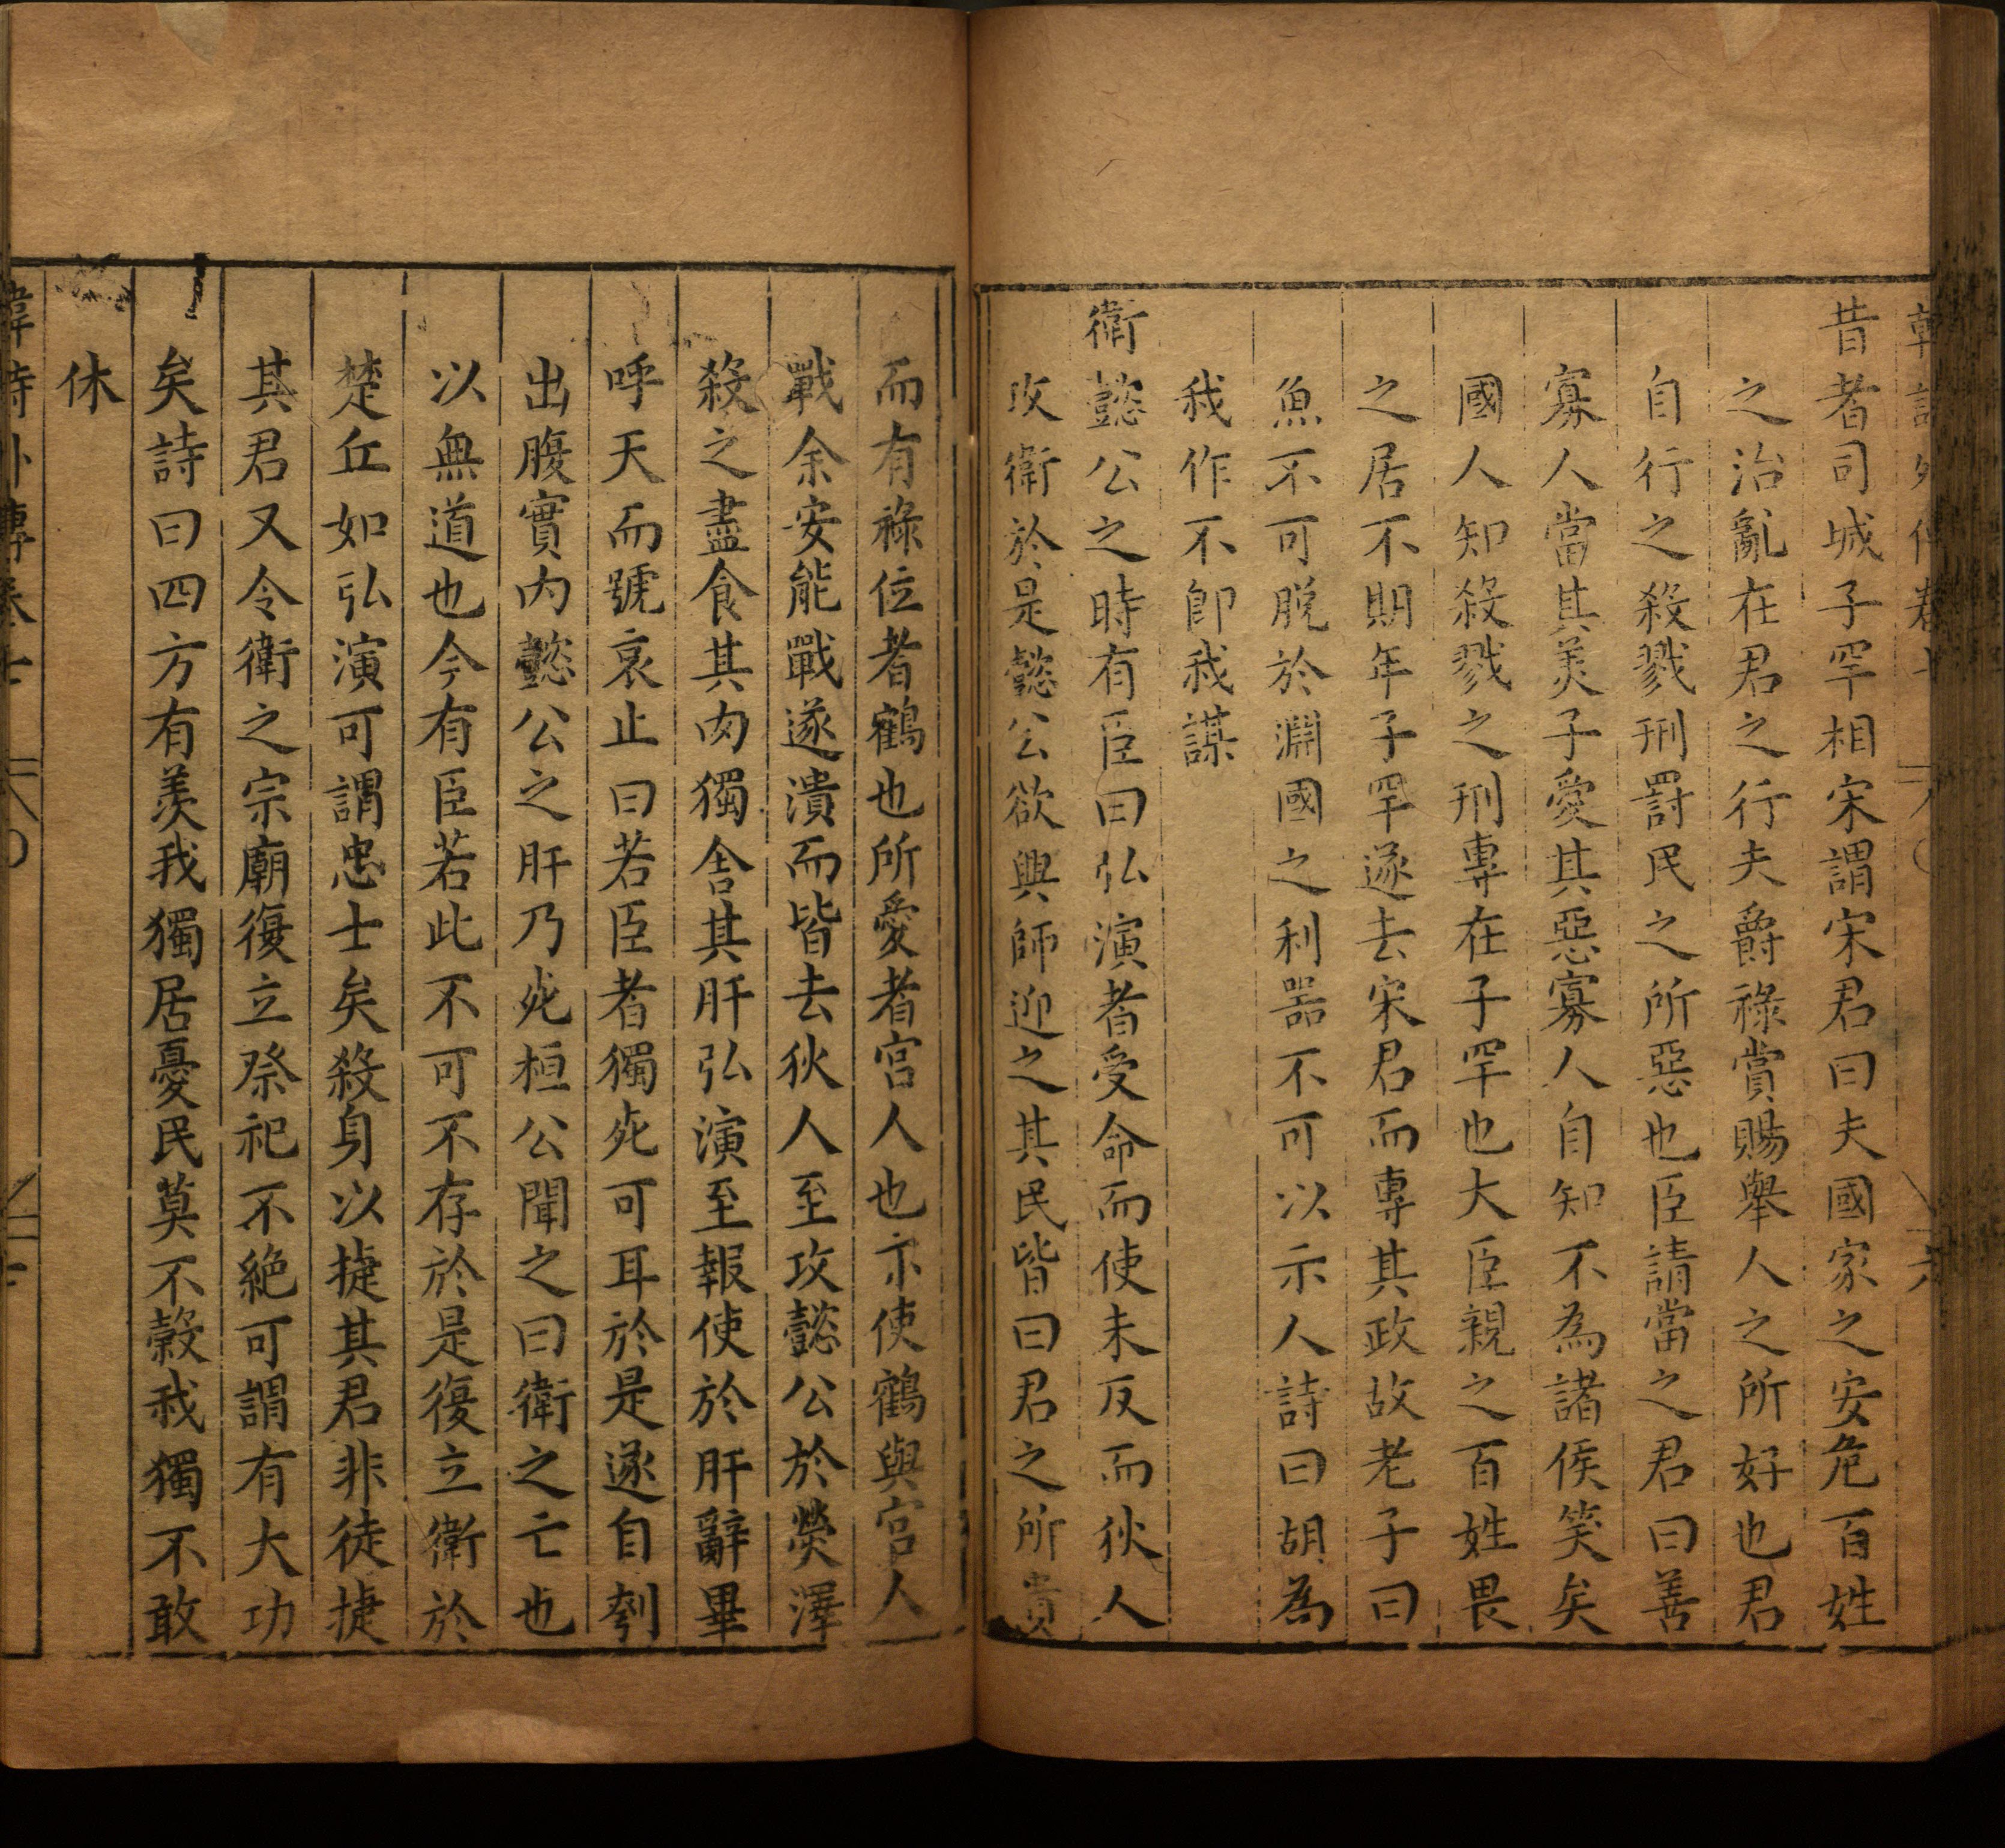 昔者司城子罕相宋謂宋君曰夫國家之安危百姓
之治亂在君之行夫爵祿賞賜舉人之所好也君
自行之殺戮刑罸民之所惡也臣請當之君曰善
寡人當其美子愛其惡寡人自知不為諸侯笑矣
國人知殺戮之刑專在子罕也大臣親之百姓畏
之居不期年子罕遂去宋君而專其政故老子曰
魚不可脫於淵國之利器不可以示人詩曰胡為
我作不即我謀
衛懿公之時有臣曰弘演者受命而使未反而狄人
攻衛於是懿公欲興師迎之其民皆曰君之所貴
而有祿位者鶴也所愛者宮人也亦使鶴與宮人
戰余安能戰遂潰而皆去狄人至攻懿公於熒澤
殺之盡食其肉獨舍其肝弘演至報使於肝辭畢
呼天而號哀止曰若臣者獨死可耳於是遂自刳
出腹實內懿公之肝乃死桓公聞之曰衛之亡也
以無道也今有臣若此不可不存於是復立衛於
楚丘如弘演可謂忠士矣殺身以捷其君非徒捷
其君又令衛之宗廟復立祭祀不絕可謂有大功
矣詩曰四方有羨我獨居憂民莫不穀我獨不敢
休